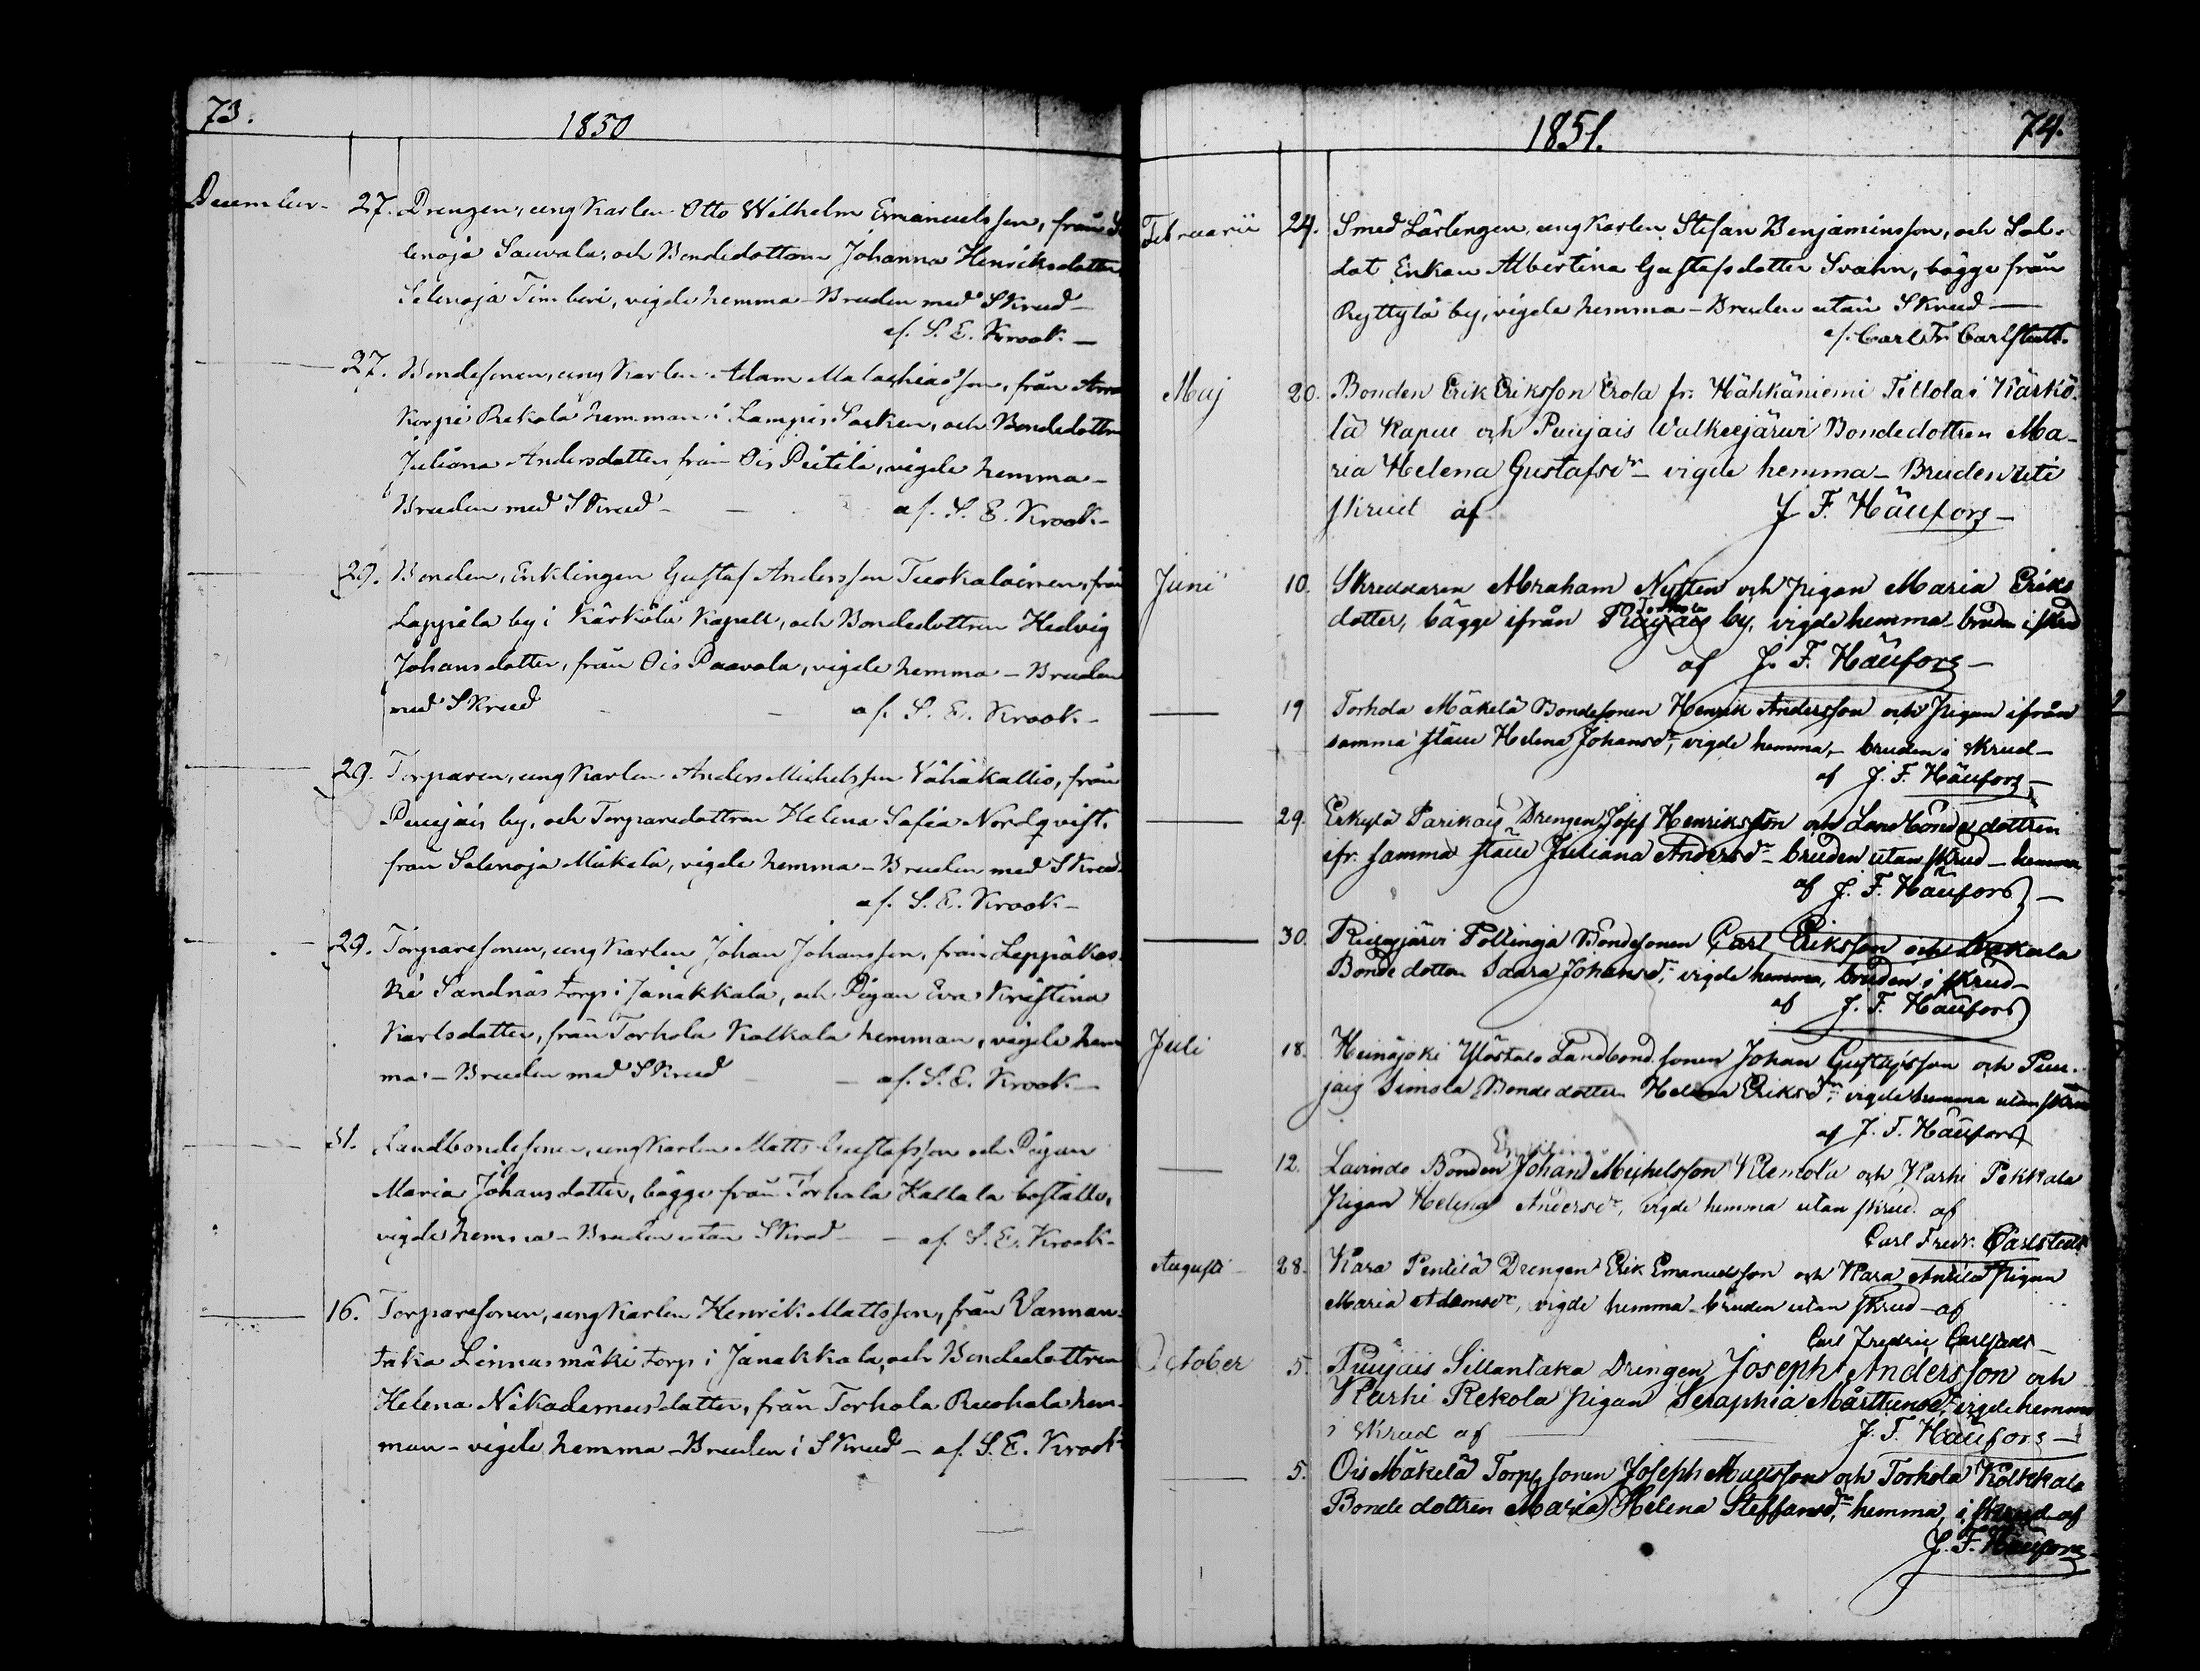 73.
1850
December 27. Drengen, ungkarlen Otto Wilhelm Emanuelsson, från Sa
lenoja Sauvala, och Bondedottren Johanna Henriksdotter
Salenoja Timberi, vigde hemma – Bruden med Skrud –
af. S. E. Krook. –
27. Bondesonen, ungkarlen Adam Malachiasson, från
korpi Rekola hemman i Lampis Socken, och Bondedottren
Juliana Andersdotter, från Ois Piitilä, vigde hemma –
Bruden med Skrud – – af. S. E. Krook. –
29. Bonden, Enklingen Gustaf Andersson Tuokaloinen, från
Lappila by i Kärkölä Kapell, och Bondedottren Hedvig
Johansdotter, från Ois Paavola, vigde hemma – Bruden
med Skrud – – af. S. E. Krook. –
29. Torparen, ungkarlen Anders Michelsson Vähäkallio, från
Puujais by, och Torparedottren Helena Sofia Nordqvist,
från Salenoja Mäkelä, vigde hemma – Bruden med Skrud
af. S. E. Krook. –
29. Torparesonen, ungkarlen Johan Johansson, från Leppäkos
ki Sandnäs torp i Janakkala, och Pigan Eva Kristina
Karlsdotter, från Torhola Kolkala hemman, vigde hem
ma – Bruden med Skrud – af. S. E. Krook. –
31. Landbondesonen, ungkarlen Matts Gustafsson och Pigan
Maria Johansdotter, bägge från Torhola Kallala boställe,
vigde hemma – Bruden utan Skrud – – af. S. E. Krook. –
16. Torparesonen, ungkarlen Henrik Mattsson, från Vanan-
taka Linnasmäki torp i Janakkala, och Bondedottren
Helena Nikademusdotter, från Torhola Ruohola hem-
man – vigde hemma – Bruden i Skrud – af. S. E. Krook
1851.
74.
Februarii 24. Smed Lärlingen, ungkarlen Stefan Benjaminsson, och Sol-
dat Enkan Albertina Gustafsdotter Svahn, bägge från
Ryttylä by, vigde hemma – Bruden utan Skrud –
af. Carl Fr. Carlstedt.
Maj 20. Bonden Erik Eriksson Erola fr. Hähkäniemi Tillola i Kärkö-
lä Kapell och Puujais Walkeejärwi Bondedottren Ma-
ria Helena Gustafsdr – vigde hemma – Bruden uti
skrud af J. F. Häufors –
Junii 10. Skreddaren Abraham Nysten och pigan Maria Eriks
dotter, bägge ifrån Puujais Torhola by, vigde hemma – bruden i skrud
af J. F. Häufors –
19 Torhola Mäkelä Bondesonen Henrik Andersson och Pigan ifrån
samma ställe Helena Johansdr, vigde hemma, – bruden i skrud –
af J. F. Häufors –
29. Erkylä Parikais Drengen Josef Henriksson och Landbonde dottren
ifr. samma ställe Juliana Andersdr – bruden utan skrud – hemma
af J. F. Häufors –
30. Pollinoja Bondesonen Carl Eriksson och
Bonde dottren Saara Johansdr, vigde hemma, bruden i skrud –
af J. F. Häufors
Juli 18. Heinäjoki Ylöstalo Landbond sonen Johan Gustafsson och Puu-
jais Simola Bonde dottern Helena Eriksdr, vigde hemma utan skrud
af J. F. Häufors
12. Enklingen
Lavinde Bonden Johan Michelsson Klemola och Karhi Pekkala
Pigan Helena Andersdr, vigde hemma utan skrud. af
Carl Fredr. Carlstedt
Augusti 28. Kara Pentilä Drengen Erik Emanuelsson och Kara Anttila Pigan
Maria Adamsdr, vigde hemma – bruden utan skrud – af
Carl Fredric Carlstedt –
October 5. Puujais Sillantaka Drengen Joseph Andersson och
Karhi Rekola Pigan Seraphia Mårtensdr vigde hemma
i skrud af J. F. Häufors –
5. Ois Mäkelä Torp sonen Joseph Mattsson och Torhola Kolkkala
Bonde dottren Maria Helena Steffansdr, hemma, i skrud af
J. F. Häufors